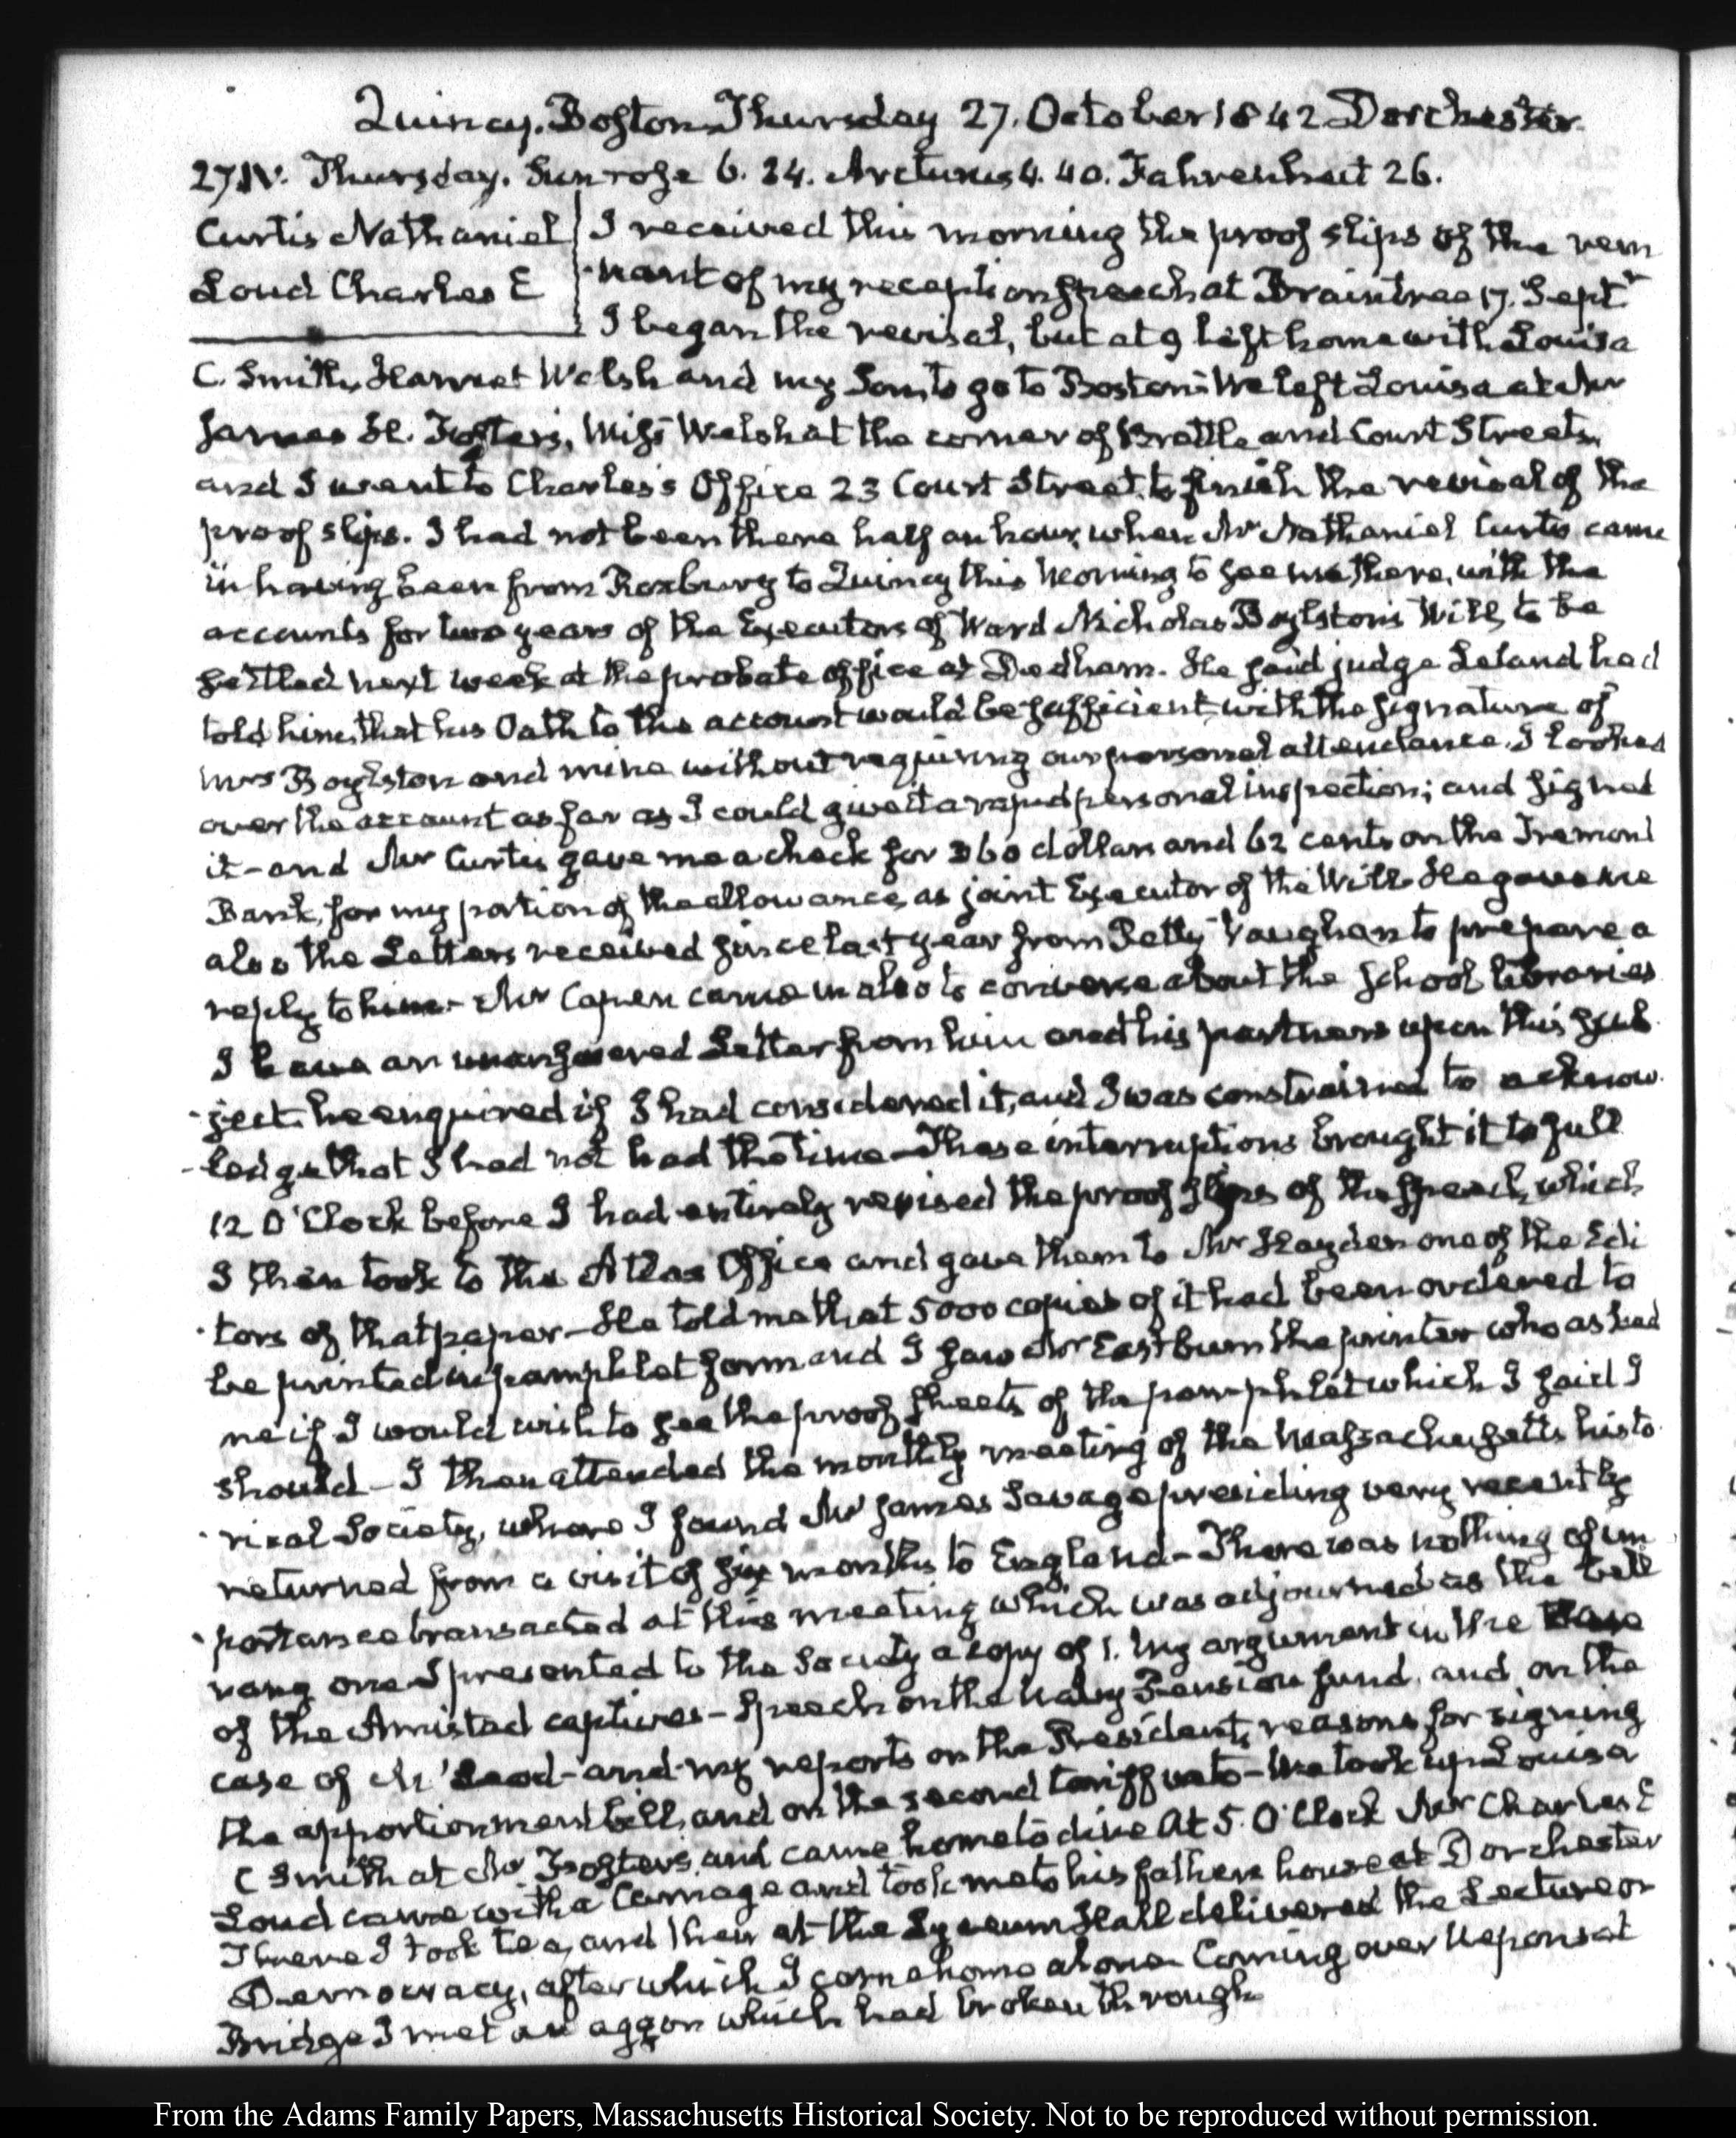 Quincy. Boston. Thursday 27. October 1842 Dorchester.
27. IV. Thursday. Sun rose 6. 24. Arcturus 4. 40. Fahrenheit 26.
Curtis Nathaniel
Loud Charles E
I received this morning the proof slips of the rem
-nant of my reception speech at Braintree 17. Septr
I began the revisal, but at 9 left home with Louisa
C. Smith, Harriet Welsh and my Son, to go to Boston. We left Louisa at Mr
James H. Foster's, Miss Welsh at the corner of Brattle and Court Streets,
and I went to Charles's Office 23 Court Street, to finish the revisal of the
proof slips. I had not been there half an hour, when Mr Nathaniel Curtis came
in having been from Roxbury to Quincy this Morning to see me there, with the
accounts for two years of the Executors of Ward Nicholas Boylston's Will, to be
settled next week at the probate office at Dedham. He said judge Leland had
told him, that his Oath to the account would be sufficient, with the signature of
Mrs Boylston and mine without requiring our personal attendance. I looked
over the account as far as I could give it a rapid personal inspection; and signed
it - and Mr Curtis gave me a check for 360 dollars and 62 cents on the Tremont
Bank, for my portion of the allowance, as joint Executor of the Will. He gave me
also the Letters received since last year from Petty Vaughan to prepare a
reply to him - Mr Capen came in also to converse about the school libraries
I have an unanswered Letter from him and his partners upon this sub
-ject. he enquired if I had considered it, and I was constrained to acknow
-ledge that I had not had the time - These interruptions brought it to full
12 O'Clock before I had entirely revised the proof slips of the speech, which
I then took to the Atlas Office and gave them to Mr Hayden one of the Edi
-tors of that paper - He told me that 5000 copies of it had been ordered to
be printed in pamphlet form and I saw Mr Eastburn the printer who asked
me if I would wish to see the proof sheets of the pamphlet which I said I
should - I then attended the monthly meeting of the Massachusetts histo
-rical Society, where I found Mr James Savage presiding very recently
returned from a visit of six months to England - There was nothing of im
-portance transacted at this meeting which was adjourned as the bell
rang one I presented to the Society a copy of 1. My argument in the Case
of the Amistad captives - Speech on the Navy Pension fund, and on the
case of McLeod - and my reports on the President's reasons for signing
the apportionment bill, and on the second tariff veto - We took up Louisa
C Smith at Mr Foster's, and came home to dine At 5. O'Clock Mr Charles E
Loud came with a Carriage and took me to his father's house at Dorchester
There I took tea, and then at the Lyceum Hall delivered the Lecture on
Democracy, after which I came home alone. Coming over Neponset
Bridge I met a waggon which had broken through
From the Adams Family Papers, Massachusetts Historical Society. Not to be reproduced without permission.